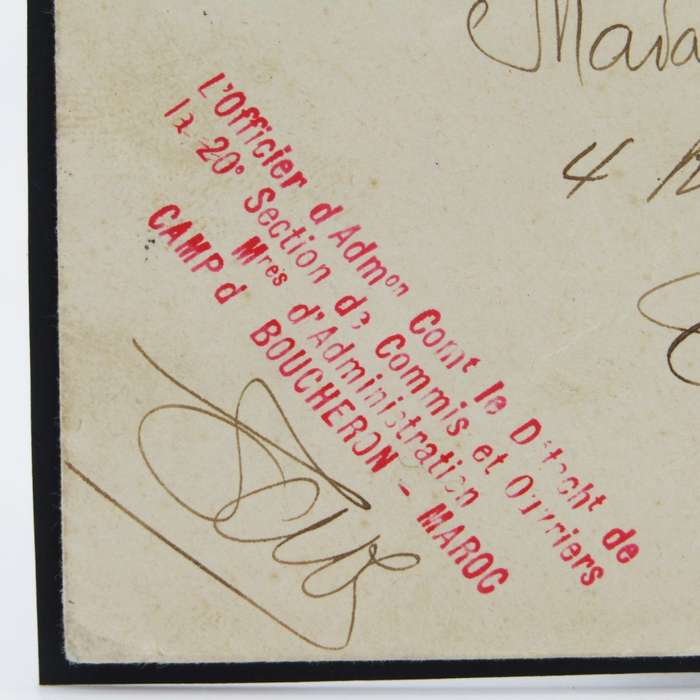 L'Officier d'Admon Comt le Détacht de
la 20e Section de Commis et Ouvriers
Mres d'Administration
CAMP d BOUCHERON - MAROC
4